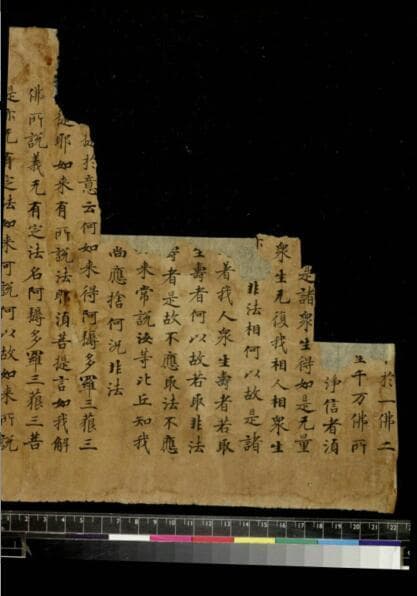 於一佛二
千万佛所
淨信者湏
是諸衆生得如是无量
衆生无復我相人相衆生
非法相何以故是諸
着我人衆生壽者若取
生壽者何以故若取非法
者是故不應取法不應
来常說汝等比丘知我
尚應捨何況非法
於意云何如来得阿耨多羅三藐三
提耶如来有所說法耶湏菩提言如我解
佛所說義无有定法名阿耨多羅三藐三菩
是亦无有定法如来可說何以故如来所說